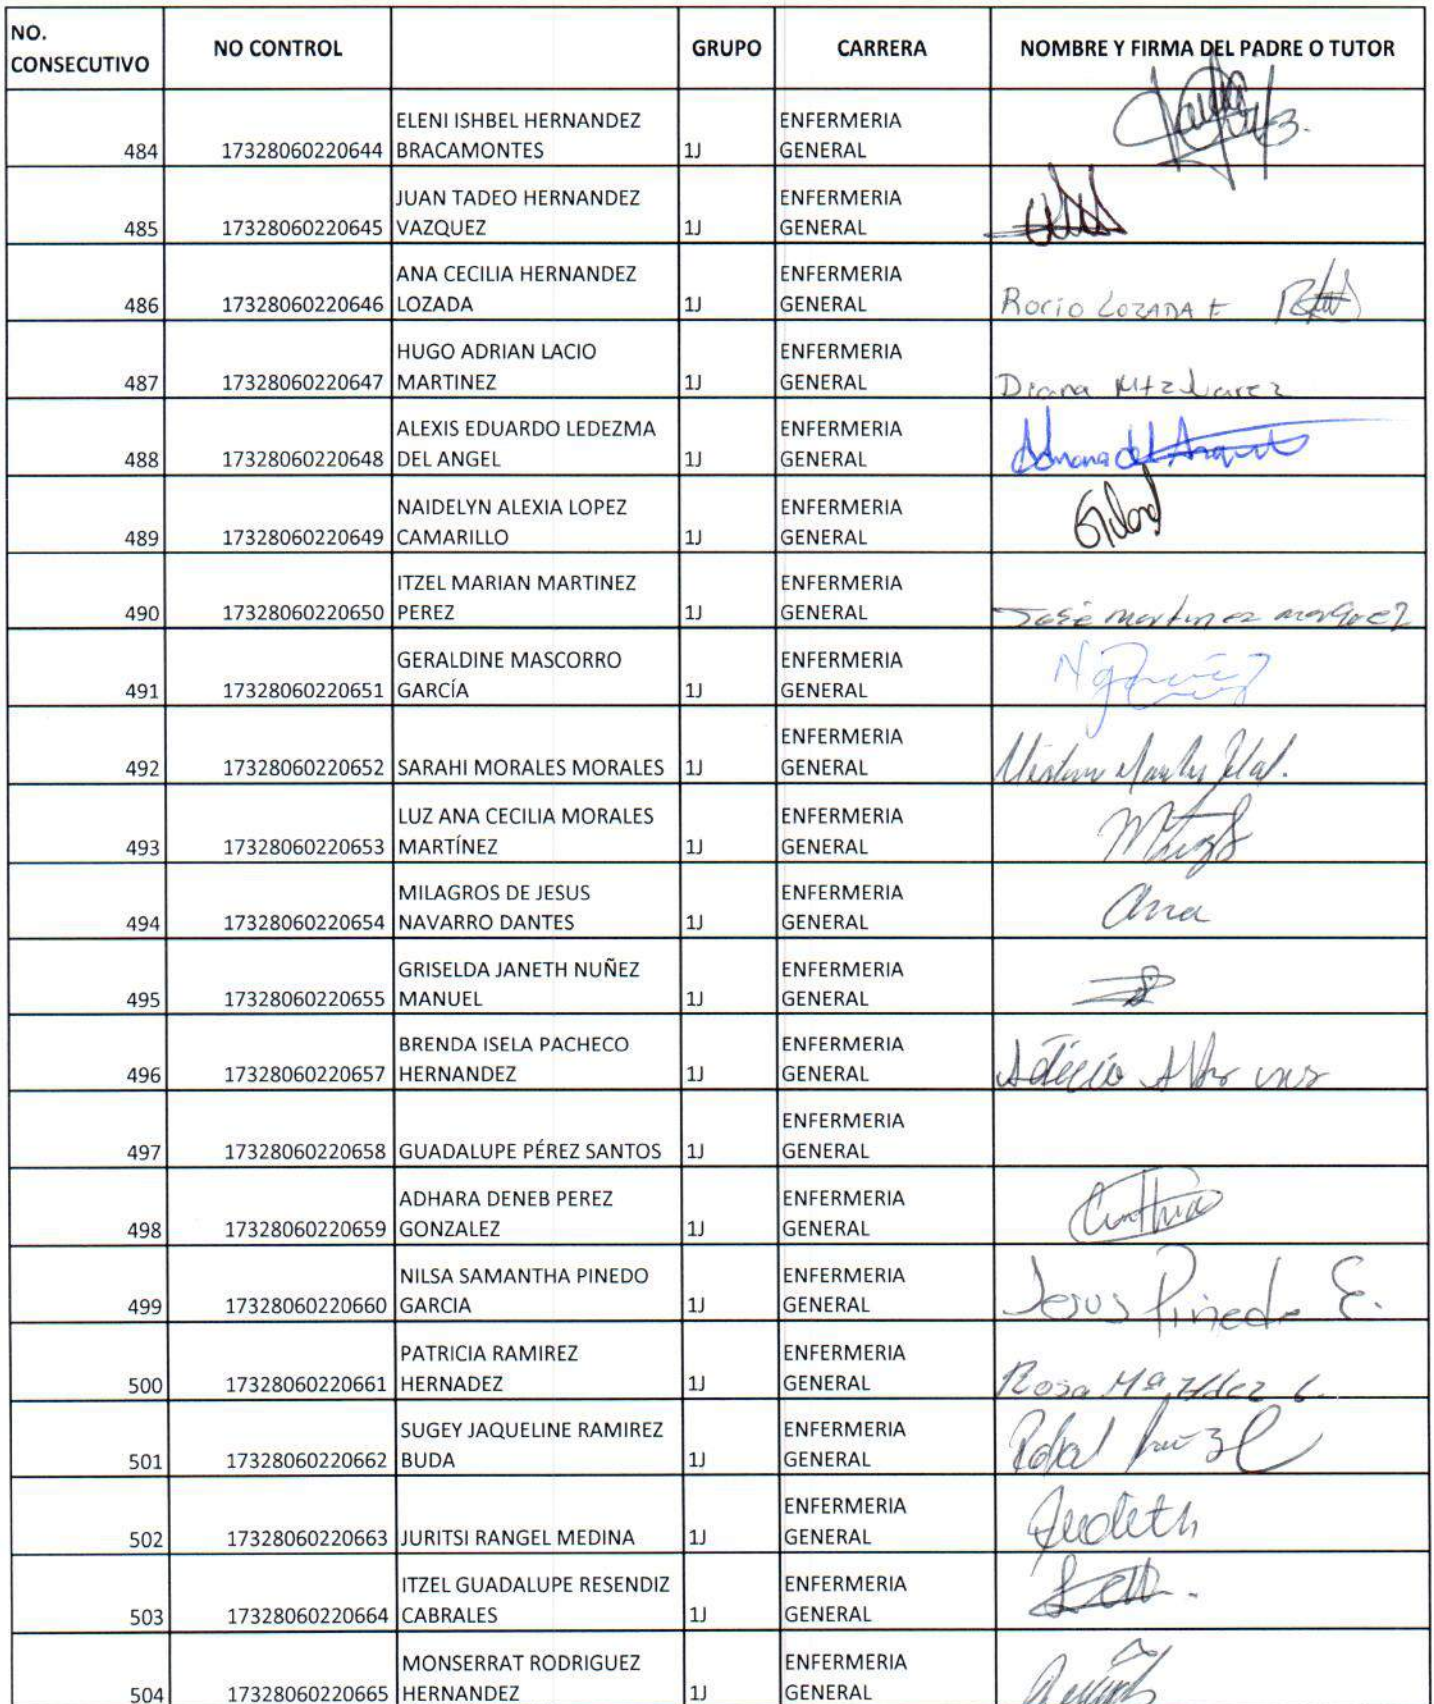 NO.
CONSECUTIVO
NO CONTROL
GRUPO
CARRERA
NOMBRE Y FIRMA DEL PADRE O TUTOR
484 17328060220644 ELENI ISHBEL HERNANDEZ
BRACAMONTES 1J ENFERMERIA
GENERAL
485 17328060220645 JUAN TADEO HERNANDEZ
VAZQUEZ 1J ENFERMERIA
GENERAL
486 17328060220646 ANA CECILIA HERNANDEZ
LOZADA 1J ENFERMERIA
GENERAL Rocio LOZADA E
487 17328060220647 HUGO ADRIAN LACIO
MARTINEZ 1J ENFERMERIA
GENERAL Diana Mtz Juarez
488 17328060220648 ALEXIS EDUARDO LEDEZMA
DEL ANGEL 1J ENFERMERIA
GENERAL
489 17328060220649 NAIDELYN ALEXIA LOPEZ
CAMARILLO 1J ENFERMERIA
GENERAL
490 17328060220650 ITZEL MARIAN MARTINEZ
PEREZ 1J ENFERMERIA
GENERAL José martinez marquez
491 17328060220651 GERALDINE MASCORRO
GARCÍA 1J ENFERMERIA
GENERAL
492 17328060220652 SARAHI MORALES MORALES 1J ENFERMERIA
GENERAL
493 17328060220653 LUZ ANA CECILIA MORALES
MARTÍNEZ 1J ENFERMERIA
GENERAL
494 17328060220654 MILAGROS DE JESUS
NAVARRO DANTES 1J ENFERMERIA
GENERAL Ana
495 17328060220655 GRISELDA JANETH NUÑEZ
MANUEL 1J ENFERMERIA
GENERAL
496 17328060220657 BRENDA ISELA PACHECO
HERNANDEZ 1J ENFERMERIA
GENERAL
497 17328060220658 GUADALUPE PÉREZ SANTOS 1J ENFERMERIA
GENERAL
498 17328060220659 ADHARA DENEB PEREZ
GONZALEZ 1J ENFERMERIA
GENERAL Cinthia
499 17328060220660 NILSA SAMANTHA PINEDO
GARCIA 1J ENFERMERIA
GENERAL Jesus Pinedo E.
500 17328060220661 PATRICIA RAMIREZ
HERNADEZ 1J ENFERMERIA
GENERAL Rosa Mª Hdez C.
501 17328060220662 SUGEY JAQUELINE RAMIREZ
BUDA 1J ENFERMERIA
GENERAL
502 17328060220663 JURITSI RANGEL MEDINA 1J ENFERMERIA
GENERAL Judeth
503 17328060220664 ITZEL GUADALUPE RESENDIZ
CABRALES 1J ENFERMERIA
GENERAL
504 17328060220665 MONSERRAT RODRIGUEZ
HERNANDEZ 1J ENFERMERIA
GENERAL